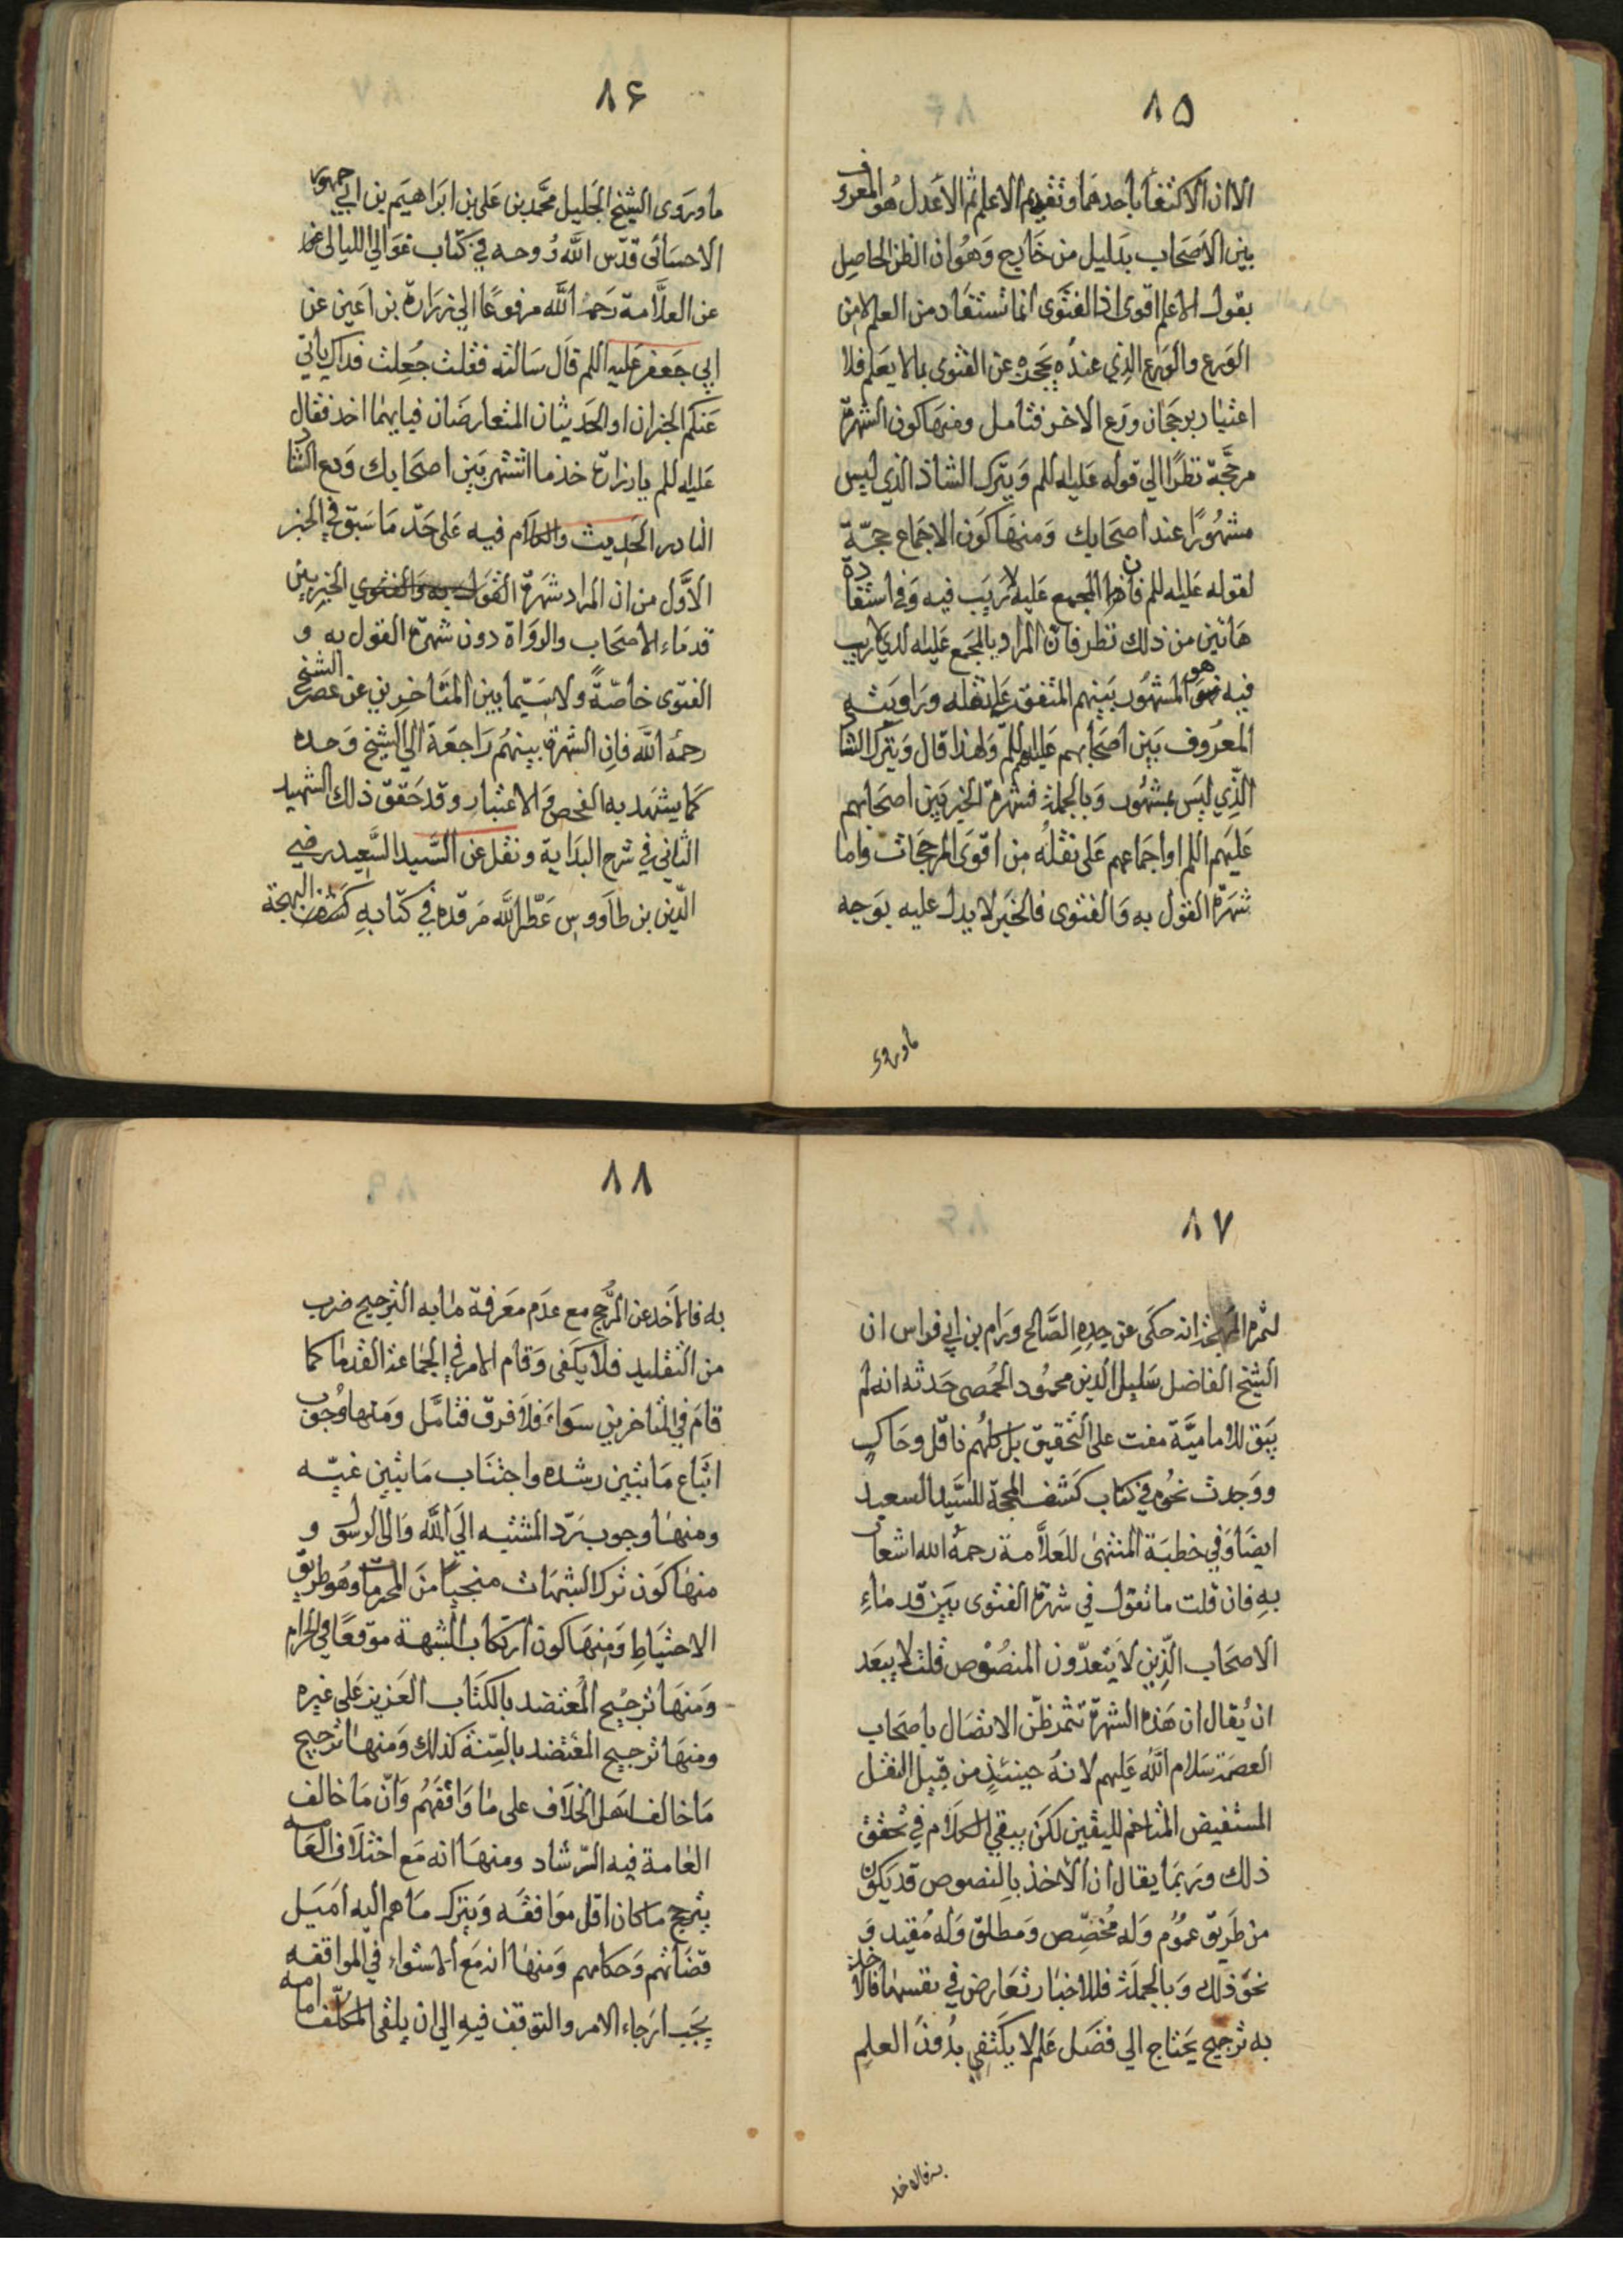 ٨٥
الا ان الاكتفاء باحدهما وتقديم الاعلم ثم الاعدل هو المعروف
بين الاصحاب بدليل من خارج وهو ان الظن الحاصل
بقول الاعلم اقوى اذ الفتوى انما تستفاد من العلم لا من
الورع والورع الذي عنده يحجزه عن الفتوى بما لا يعلم فلا
اعتبار برجحان ورع الاخر فتامل ومنها كون الشهرة
مرجحة نظرا الي قوله عليه السلم ويترك الشاذ الذي ليس
مشهورا عند اصحابك ومنها كون الاجماع حجّة
لقوله عليه السلم فان المجمع عليه لا ريب فيه وفي استفادة
هاتين من ذلك نظر فان المراد بالمجمع عليه الذي لا ريب
فيه هو المشهور بينهم المتفق على نقله وراويته
المعروف بين اصحابهم عليهم السلم ولهذا قال ويترك الشاذ
الذي ليس بمشهور وبالجملة فشهرة الخبر بين اصحابهم
عليهم السلم او اجماعهم على نقله من اقوى المرجحات واما
شهرة القول به والفتوى فالخبر لا يدل عليه بوجه
ما وروى
٨۶
ما وروى الشيخ الجليل محمّد بن علي بن ابراهيم بن ابي جمهور
الاحسائي قدّس الله روحه في كتاب غوالي الليالي
عن العلامة رحمه الله مرفوعا الي زرارة بن اعين عن
ابي جعفر عليه السلم قال سالته فقلت جعلت فداك ياتي
عنكم الخبران او الحديثان المتعارضان فبايهما اخذ فقال
عليه السلم يا زرارة خذ ما اشتهر بين اصحابك ودع الشاذ
النادر الحديث والكلام فيه على حدّ ما سبق في الخبر
الاوّل من ان المراد شهرة الخبر بين
قدماء الاصحاب والرواة دون شهرة القول به و
الفتوى خاصّة ولا سيّما بين المتاخرين عن عصر الشيخ
رحمه الله فان الشهرة بينهم راجعة الي الشيخ وحده
كما يشهد به الفحص والاعتبار وقد حقق ذلك الشهيد
الثاني في شرح البداية ونقل عن السّيد السّعيد رضي
الدّين بن طاووس عطّر الله مرقده في كتابه كشف البهجة
٨٧
لثمرة المهجة انه حكى عن جده الصّالح ورام بن ابي فواس ان
الشيخ الفاضل سليل الدين محمود الحمصي حدثه انه لم
يبق للاماميّة مفت على التحقيق بل كلهم ناقل وحاك
ووجدت نحوه في كتاب كشف المحجّة للسيّد السعيد
ايضا وفي خطبة المنتهى للعلّامة رحمه الله اشعار
به فان قلت ما تقول في شهرة الفتوى بين قدماء
الاصحاب الّذين لا يتعدّون المنصوص قلت لا يبعد
ان يقال ان هذه الشهرة تثمر ظنّ الاتصال باصحاب
العصمة سلام الله عليهم لانه حينئذ من قبيل النقل
المستفيض المتاخم لليقين لكن يبقي الكلام في تحقق
ذلك وربما يقال ان الاخذ بالنصوص قد يكون
من طريق عموم وله مخصّص ومطلق وله مقيد و
نحو ذلك وبالجملة فللاخبار تعارض في نفسها فالاخذ
به ترجيح يحتاج الي فضل علم لا يكتفي بدون العلم
به فالاخذ
٨٨
به فالاخذ عن المرجّح مع عدم معرفة ما به الترجيح ضرب
من التقليد فلا يكفي وقام الامر في الجماعة القدما كما
قام في المتاخرين سواء فلا فرق فتامّل ومنها وجوب
اتّباع ما تبين رشده واجتناب ما تبين غيّه
ومنها وجوب ردّ المشتبه الي الله والي الرسول و
منها كون ترك الشبهات منجيا من المحرمات وهو طريق
الاحتياط ومنها كون ارتكاب الشبهة موقعا في الحرام
ومنها ترجيح المعتضد بالكتاب العزيز على غيره
ومنها ترجيح المعتضد بالسّنة كذلك ومنها ترجيح
ما خالف اهل الخلاف على ما وافقهم وانّ ما خالف
العامة فيه الرّشاد ومنها انه مع اختلاف العامه
يترجح ما كان اقل موافقه ويترك ما هم اليه اميل
قضاتهم وحكامهم ومنها انه مع الاستواء في الموافقه
يجب ارجاء الامر والتوقف فيه الي ان يلقي المكلّف امامه